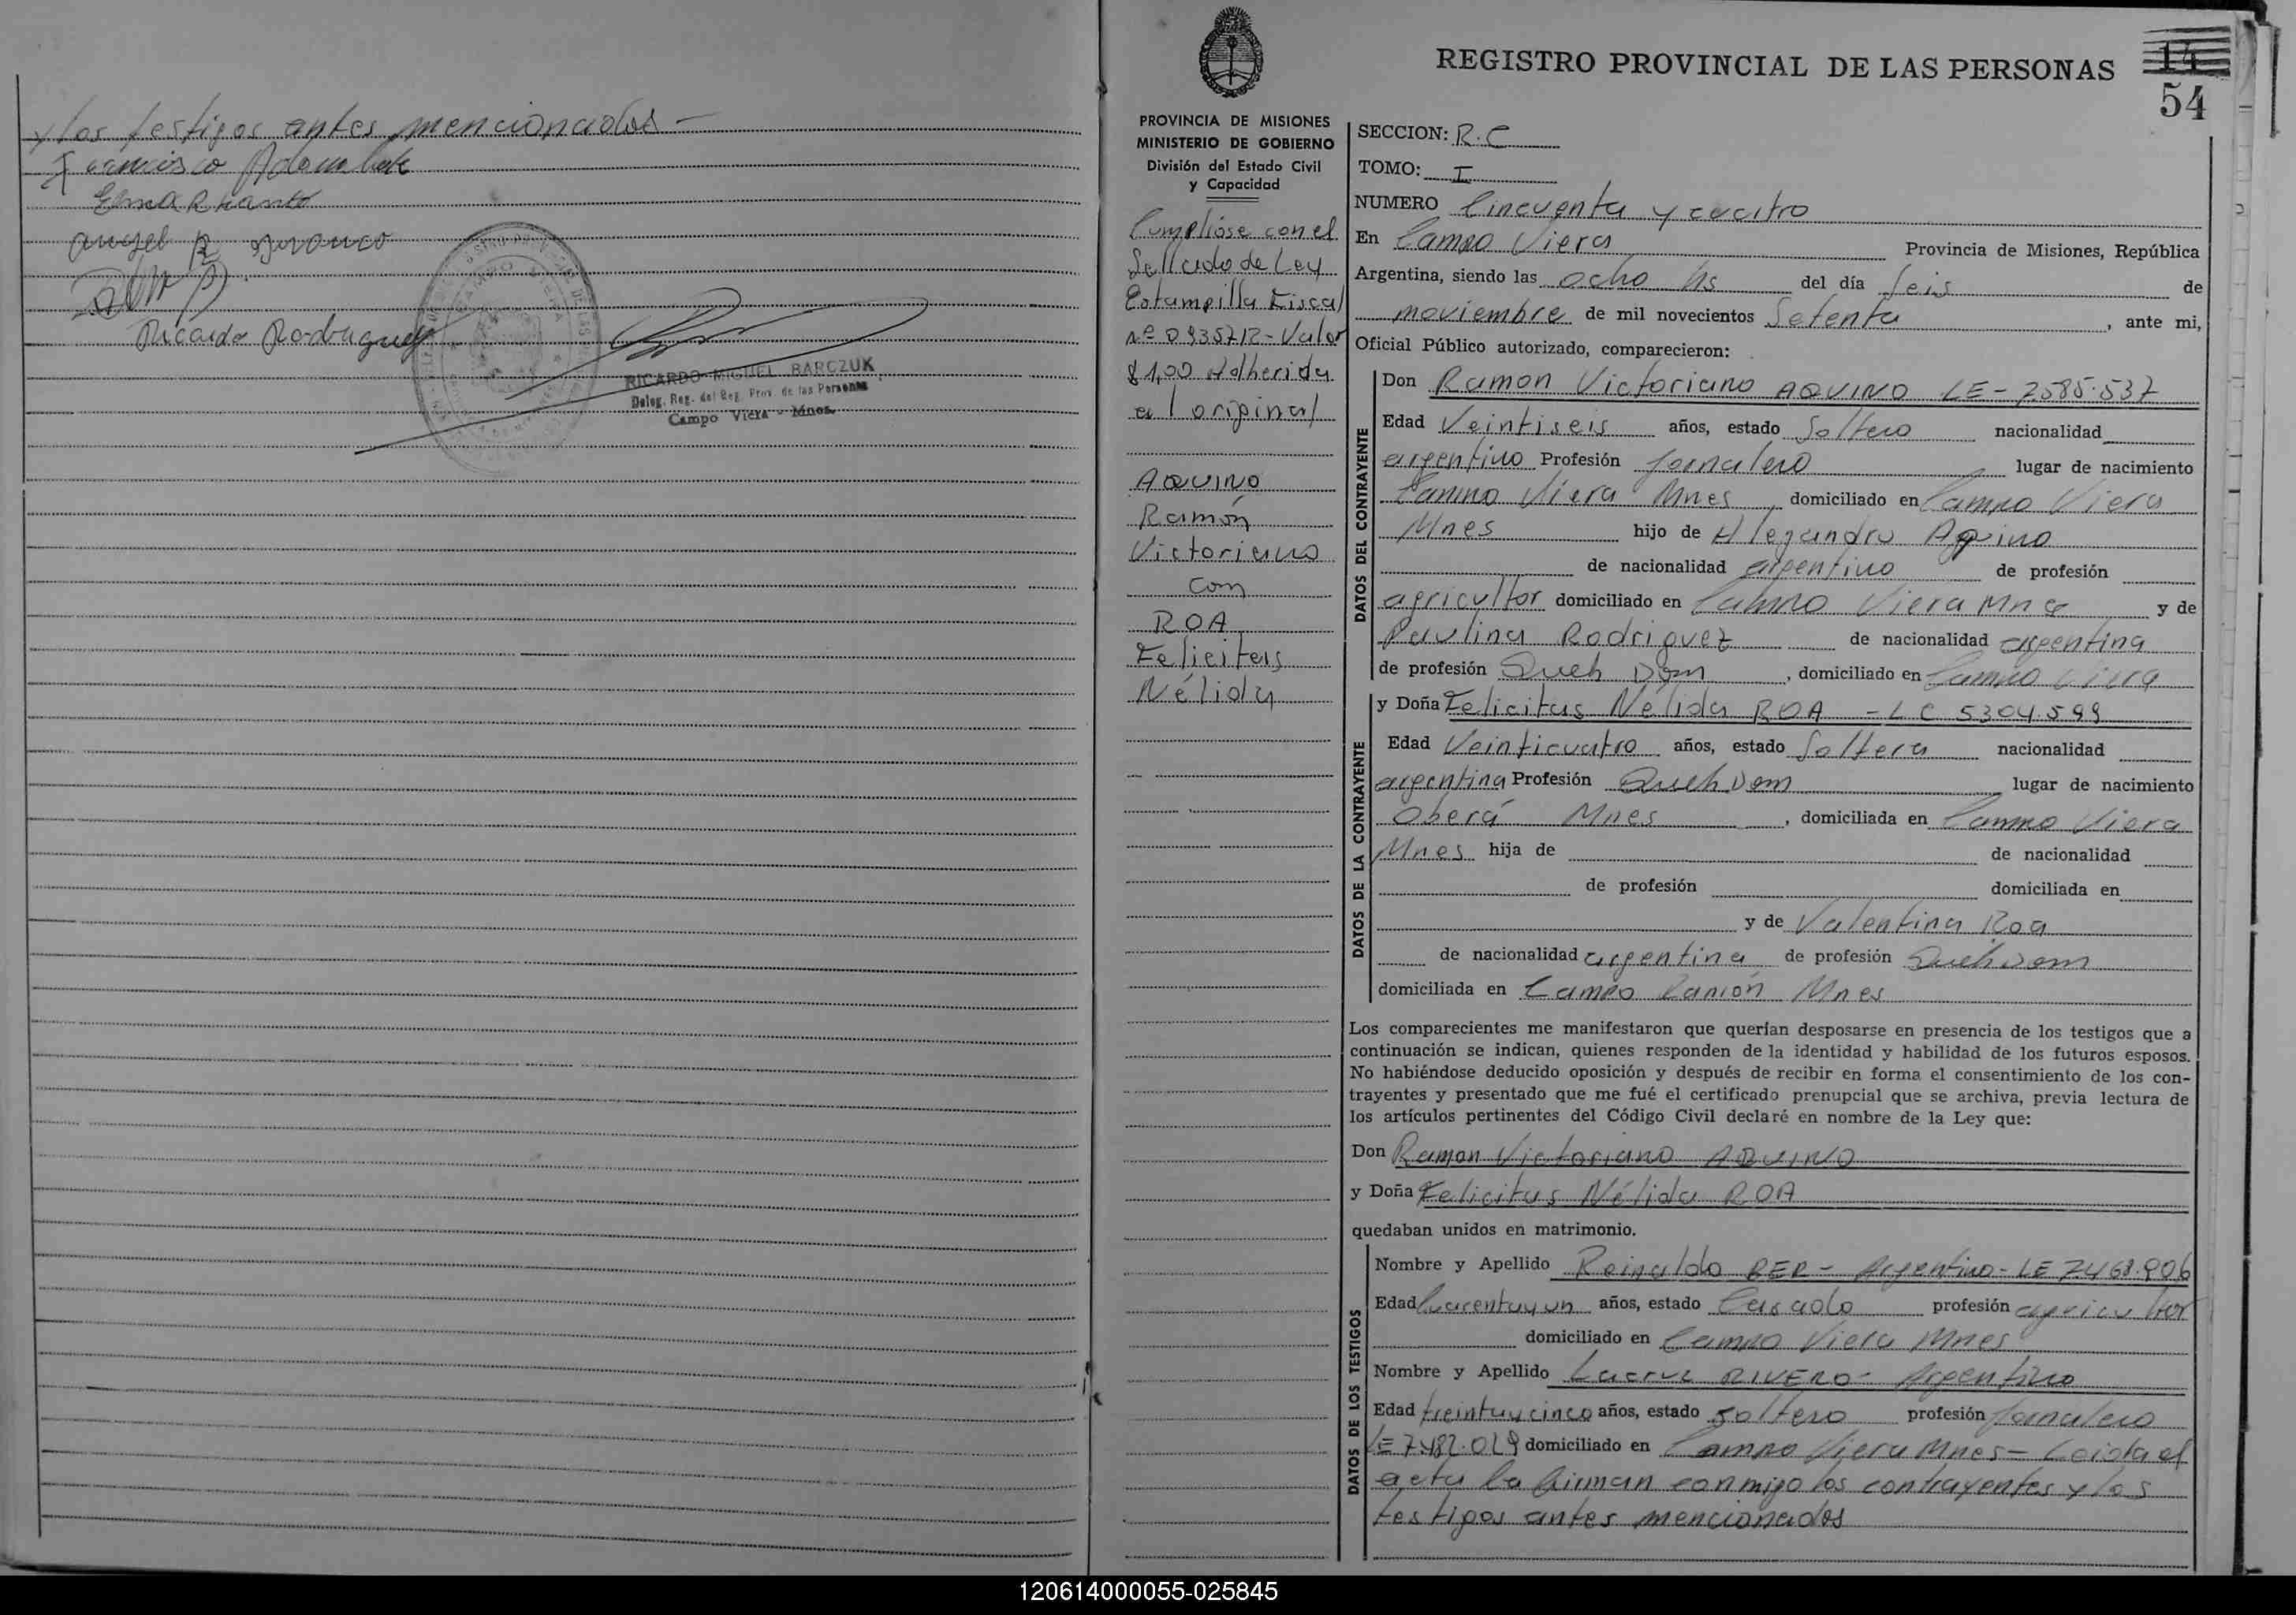 y los testigos antes mencionados -
Francisco
Ricardo Rodriguez
RICARDO MIGUEL BARCZUK
Deleg. Reg. del Reg. Prov. de las Personas
Campo Viera - Mnes.
REGISTRO PROVINCIAL DE LAS PERSONAS
14
54
PROVINCIA DE MISIONES
MINISTERIO DE GOBIERNO
División del Estado Civil
y Capacidad
Cumpliose con el
Sellado de Ley
Estampilla Fiscal
nº 0935712 - Valor
$ 1,00 adherida
al original
AQUINO
Ramón
Victoriano
con
ROA
Felicitas
Nélida
SECCION: R.C
TOMO: I
NUMERO Cincuenta y cuatro
En Campo Viera Provincia de Misiones, República
Argentina, siendo las ocho hs del día seis de
noviembre de mil novecientos Setenta, ante mi,
Oficial Público autorizado, comparecieron:
DATOS DEL CONTRAYENTE
Don Ramon Victoriano AQUINO LE - 7.585.537
Edad Veintiseis años, estado Soltero nacionalidad
argentino Profesión Jornalero lugar de nacimiento
Campo Viera Mnes domiciliado en Campo Viera
Mnes hijo de Alejandro Aquino
de nacionalidad argentino de profesión
agricultor domiciliado en Campo Viera Mnes y de
Paulina Rodriguez de nacionalidad argentina
de profesión Queh Dom, domiciliado en Campo Viera
DATOS DE LA CONTRAYENTE
y Doña Felicitas Nélida ROA - LC 5304.599
Edad Veinticuatro años, estado Soltera nacionalidad
argentina Profesión Queh Dom lugar de nacimiento
Oberá Mnes, domiciliada en Campo Viera
Mnes hija de de nacionalidad
de profesión domiciliada en
y de Valentina Roa
de nacionalidad argentina de profesión Queh Dom
domiciliada en Campo Ramón Mnes
Los comparecientes me manifestaron que querían desposarse en presencia de los testigos que a
continuación se indican, quienes responden de la identidad y habilidad de los futuros esposos.
No habiéndose deducido oposición y después de recibir en forma el consentimiento de los con-
trayentes y presentado que me fué el certificado prenupcial que se archiva, previa lectura de
los artículos pertinentes del Código Civil declaré en nombre de la Ley que:
Don Ramon Victoriano AQUINO
y Doña Felicitas Nélida ROA
quedaban unidos en matrimonio.
DATOS DE LOS TESTIGOS
Nombre y Apellido Reinaldo RER - Argentino - LE 7.468.906
Edad Cuarentayun años, estado Casado profesión agricultor
domiciliado en Campo Viera Mnes
Nombre y Apellido RIVERO - Argentino
Edad treintaycinco años, estado Soltero profesión Jornalero
LE 7.482.029 domiciliado en Campo Viera Mnes - Leida el
acta la firman conmigo los contrayentes y los
testigos antes mencionados
120614000055-025845